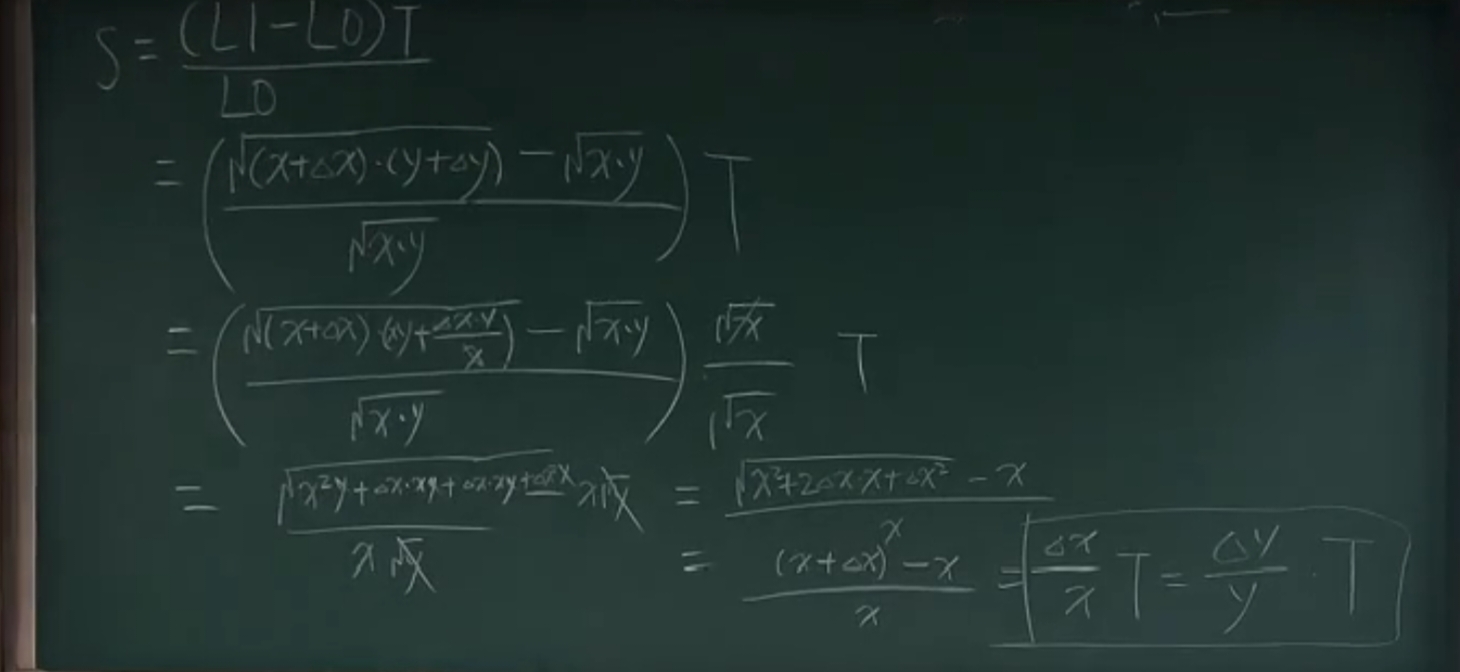 S = (L1-L0)T / L0
= ( (√((x+△x)·(y+△y)) - √(x·y)) / √(x·y) ) T
= ( (√((x+△x)·(xy+ △x·y / x)) - √(x·y)) / √(x·y) ) √x / √x T
= √(x²y+△x·xy+△x·xy+△x²x) x√y / x√y = (√(x²+2△x·x+△x²) - x) / x
= ((x+△x) - x) / x = △x / x T = △y / y · T